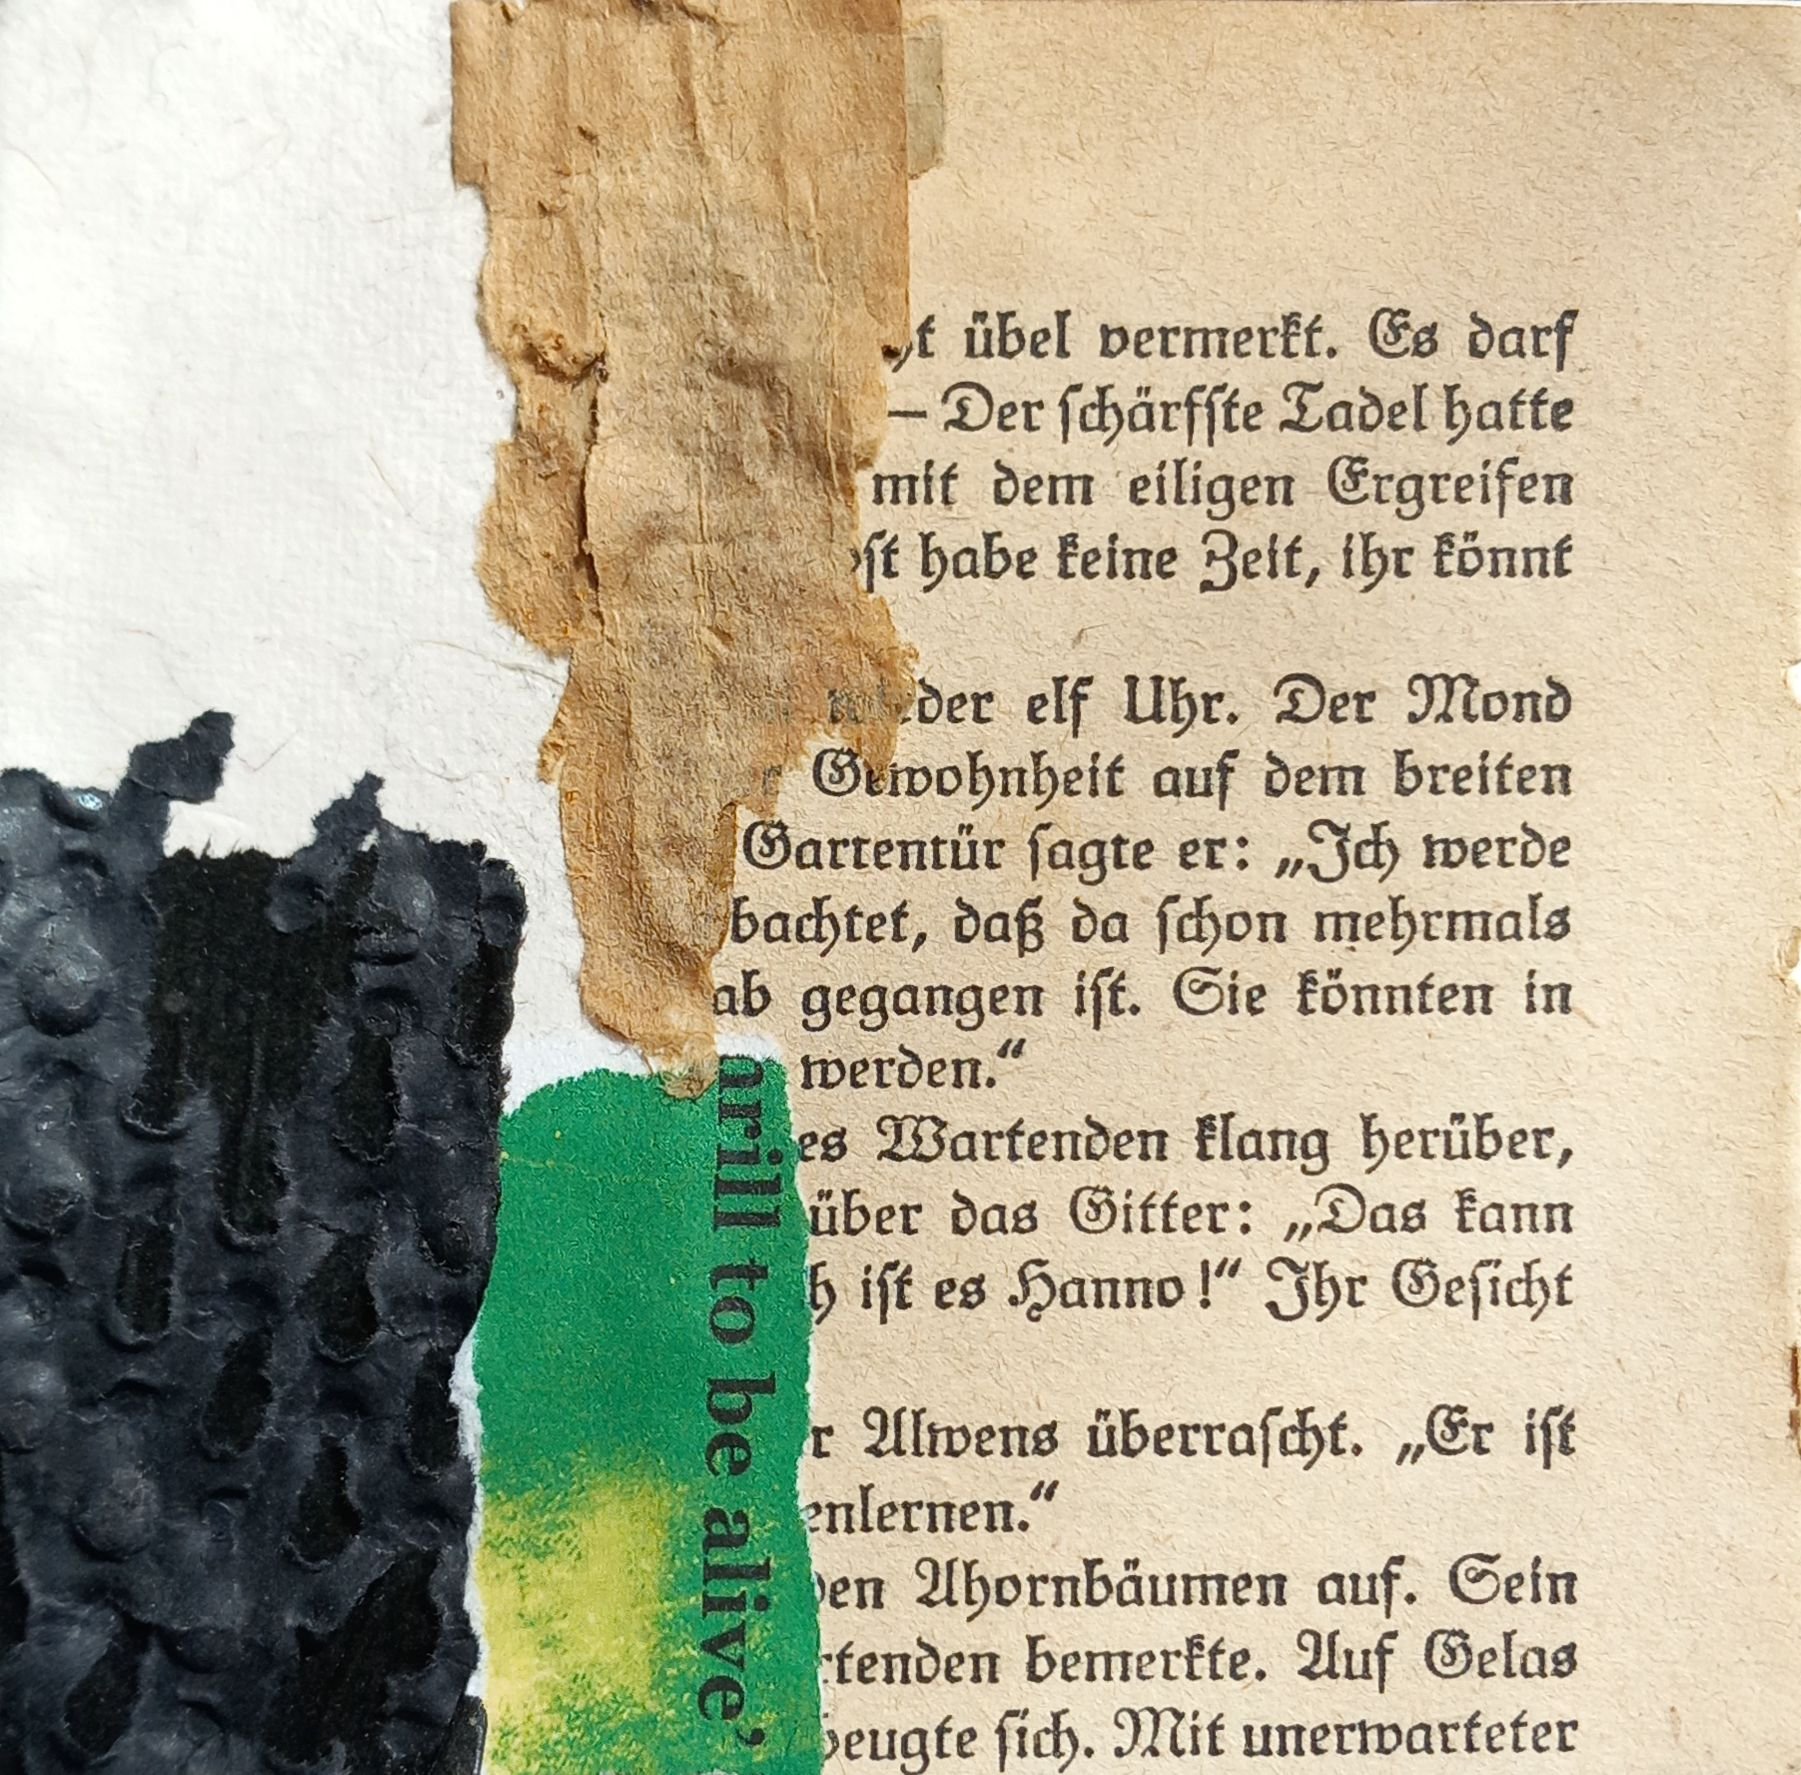 übel vermerkt. Es darf
– Der schärfste Tadel hatte
mit dem eiligen Ergreifen
habe keine Zeit, ihr könnt
wieder elf Uhr. Der Mond
Gewohnheit auf dem breiten
Gartentür sagte er: „Ich werde
bachtet, daß da schon mehrmals
ab gegangen ist. Sie könnten in
werden.“
es Wartenden klang herüber,
über das Gitter: „Das kann
h ist es Hanno!“ Ihr Gesicht
r Alwens überrascht. „Er ist
enlernen.“
den Ahornbäumen auf. Sein
rtenden bemerkte. Auf Gelas
beugte sich. Mit unerwarteter
hrill to be alive’